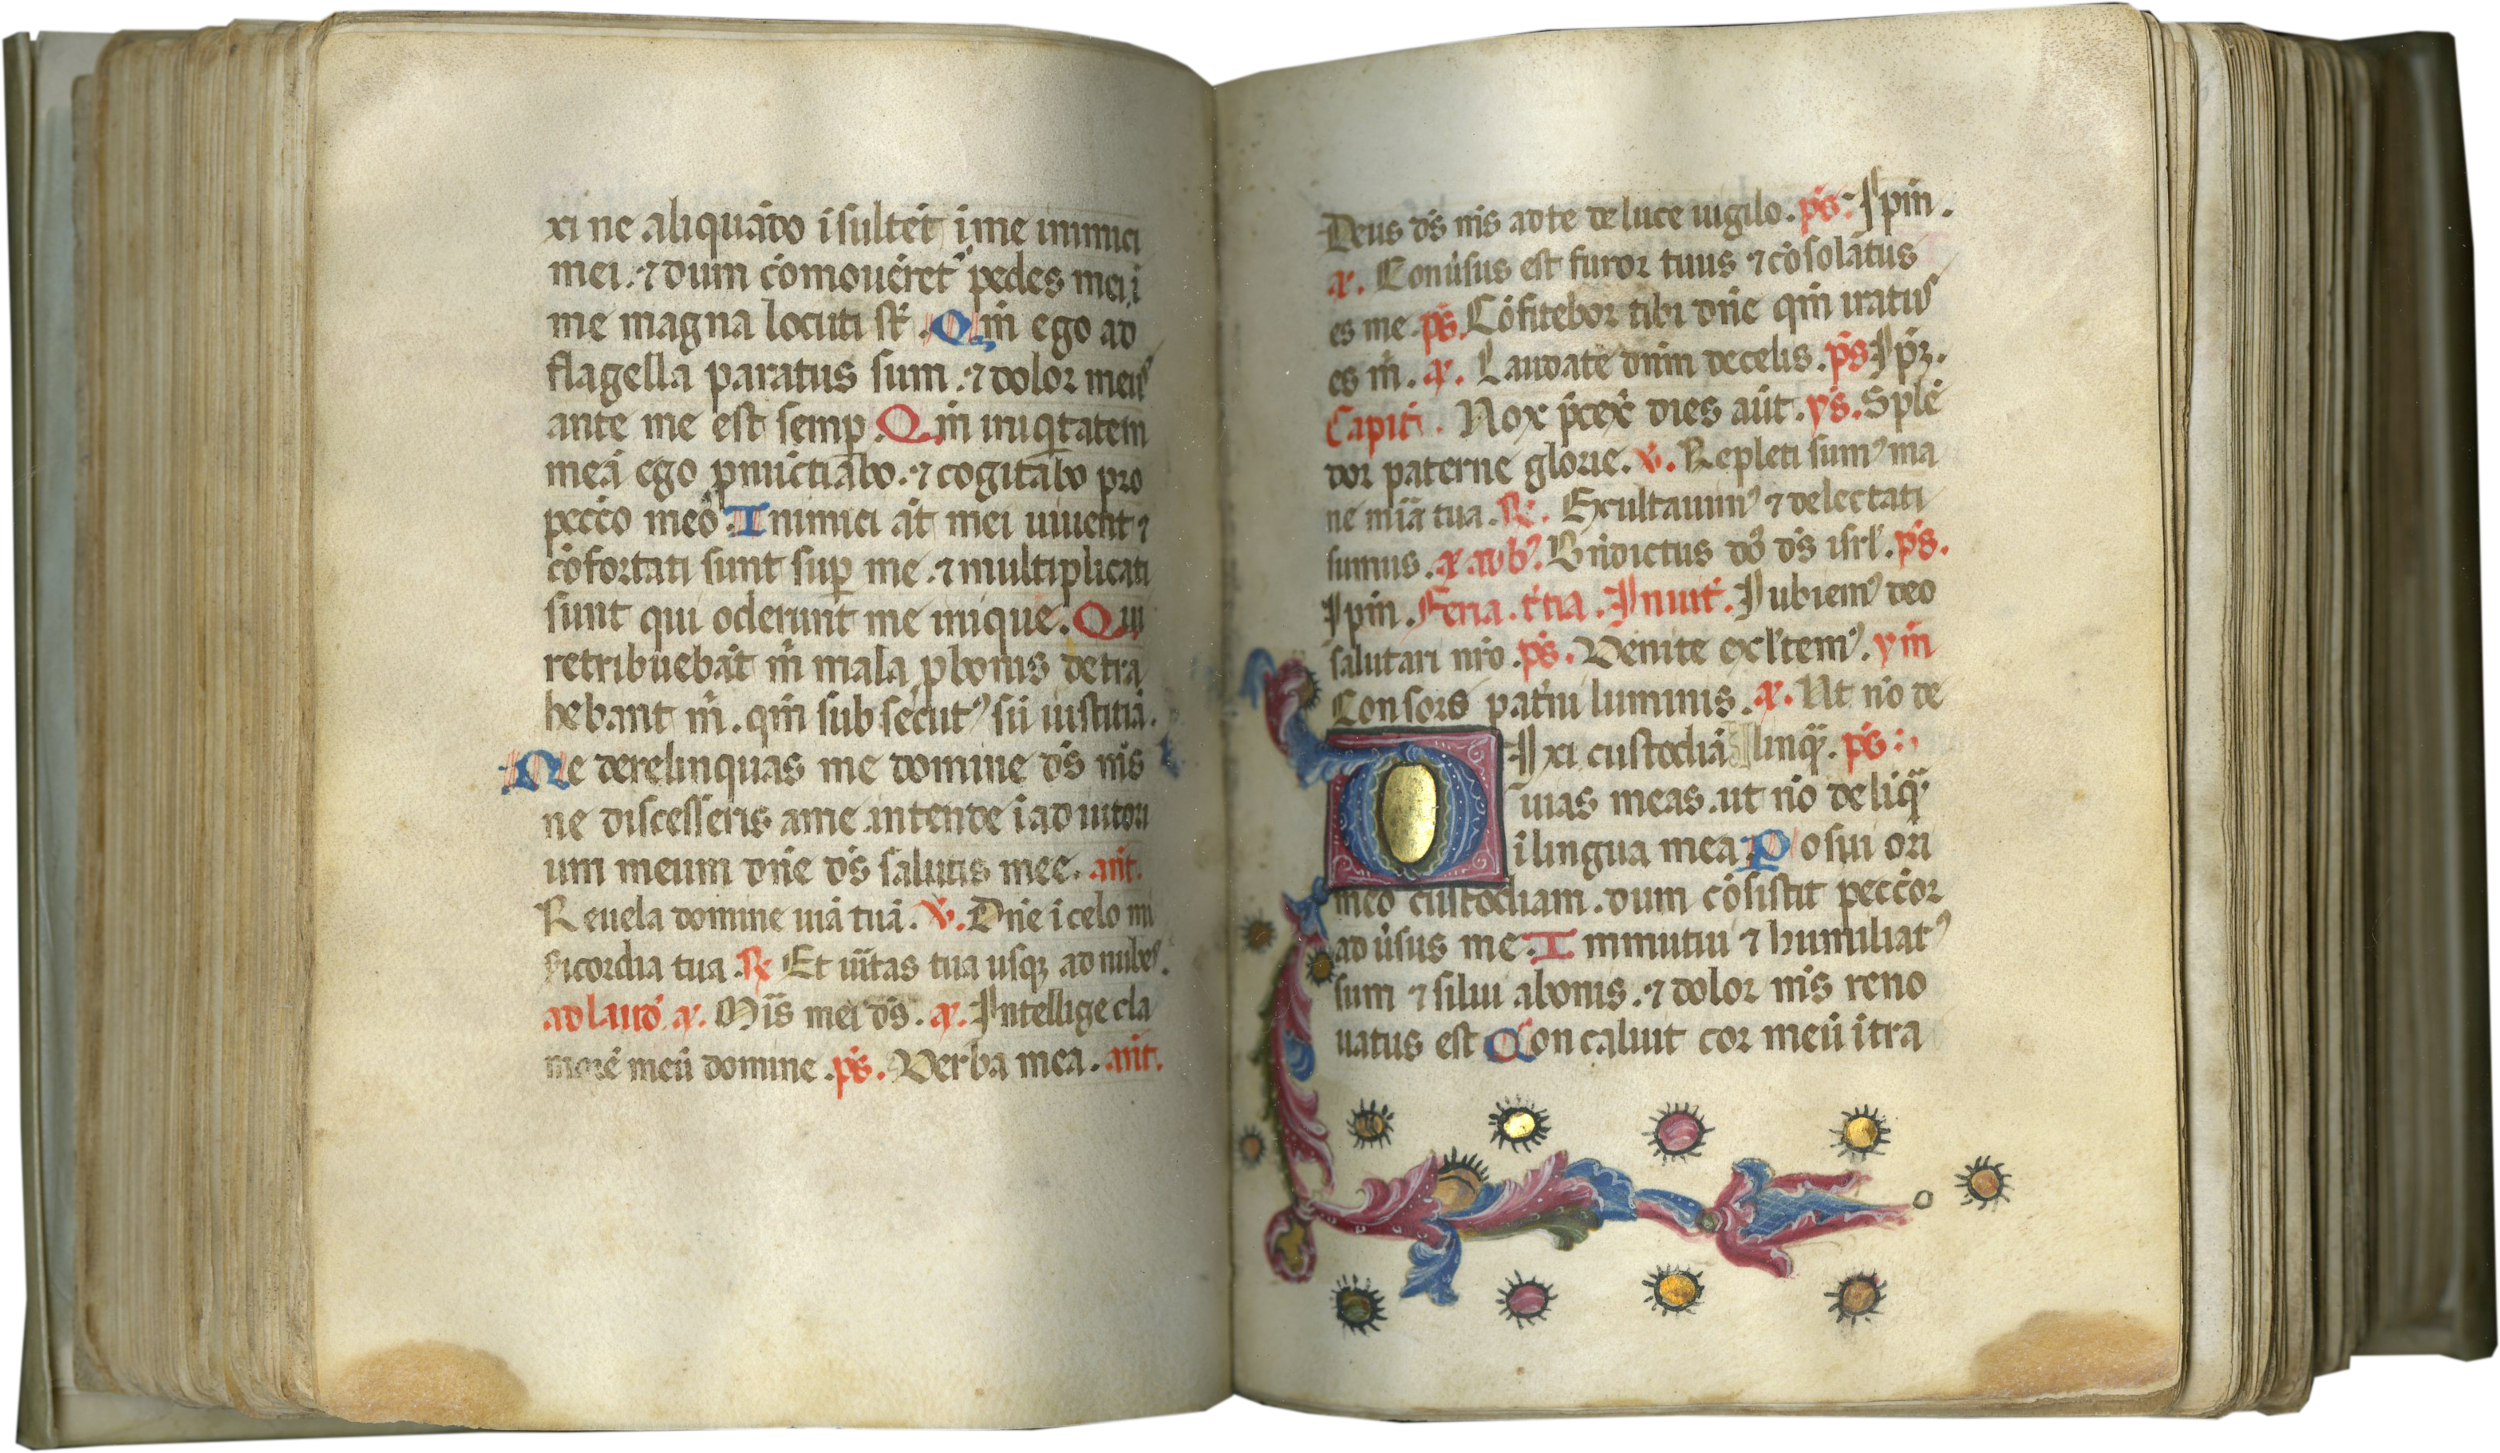 xi ne aliquādo īsultēt ī me inimici
mei. ⁊ dum cōmouēret᷒ pedes mei ī
me magna locuti sт̄. Qm̄ ego ad
flagella paratus sum. ⁊ dolor meus
ante me est semp̱. Qm̄ iniq̇tatem
meā ego p̱nūctiabo. ⁊ cogitabo pro
pecc̄o meō. Inimici āt mei uiuent ⁊
cōfortati sunt sup̱ me. ⁊ multiplicati
sunt qui oderunt me inique. Qui
retribuebāt m̄ mala p̱ bonis detra
hebant m̄. qm̄ subsecut᷒ sū iustitiā.
Ne derelinquas me domine ds̄ ms̄
ne discesseris a me. intende ī adiutori
um meum dn̄e ds̄ salutis mee. an̄t.
Reuela domine uiā tuā. v̄. Dn̄e ī celo mi
sicordia tua. R. Et ūitas tua usq; ad nubes.
ad laud̄. a. Mis̄ mei ds̄. a. Intellige cla
morē meū domine. ps̄. Verba mea. an̄t.
Deus ds̄ ms̄ ad te de luce uigilo. ps̄. Ipm̄.
a. Conūsus est furor tuus ⁊ cōsolatus
es me. ps̄. Cōfitebor tibi dn̄e qm̄ iratus
es m̄. a. Laudate dn̄m de celis. ps̄. Ip̄ꝫ.
Capit̄. Nox p̄cex̄ dies aūt. ys̄. Splē
dor paterne glorie. v̄. Repleti sum᷒ ma
ne mīa tua. R. Exultauim᷒ ⁊ delectati
sumus. a. ad b᷒. Bn̄dictus dō ds̄ isrl̄. ps̄.
Ipm̄. Feria. t̄tia. Inuit̄. Iubilem᷒ deo
salutari nr̄o. ps̄. Venite exl̄tem᷒. ym̄
Consors pat̄ni luminis. a. Ut nō de
Dixi custodiā linq̄. ps̄.
uias meas. ut nō deliq̄
ī lingua mea. Posui ori
meo custodiam. dum cōsistit pecc̄or
ad ūsus me. Immutui ⁊ humiliat᷒
sum ⁊ silui a bonis. ⁊ dolor ms̄ reno
uatus est. Concaluit cor meū ītra